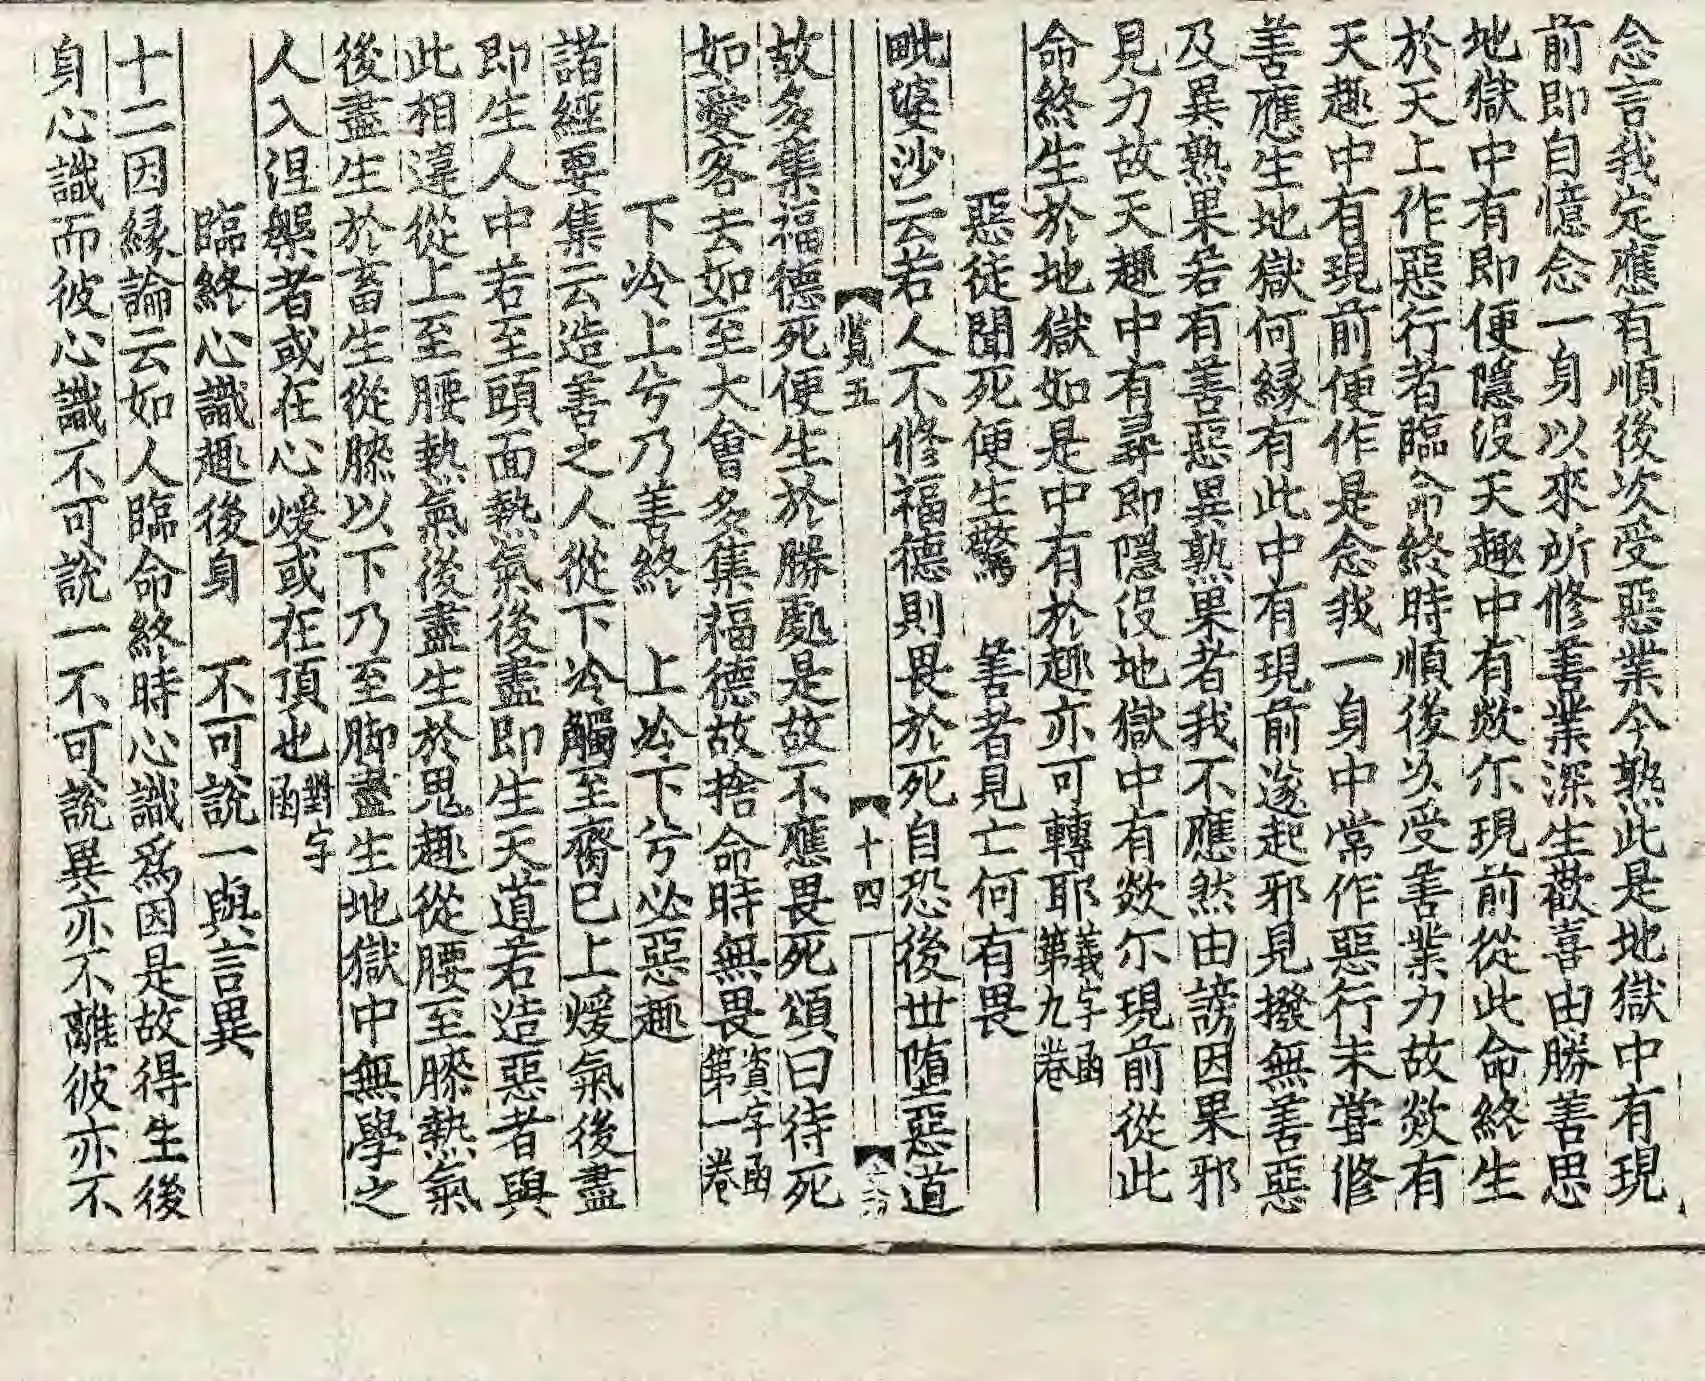 念言我定應有順後次受惡業今熟此是地獄中有現
前即自憶念一身以來所修善業深生歡喜由勝善思
地獄中有即便隱没天趣中有欻尓現前從此命終生
於天上作惡行者臨命終時順後次受善業力故欻有
天趣中有現前便作是念我一身中常作惡行未甞修
善應生地獄何縁有此中有現前遂起邪見撥無善惡
及異熟果若有善惡異熟果者我不應然由謗因果邪
見力故天趣中有尋即隱没地獄中有欻尓現前從此
命終生於地獄如是中有於趣亦可轉耶義字函第九卷
惡徒聞死便生驚　善者見亡何有畏
毗婆沙云若人不修福德則畏於死自恐後世堕惡道
覧五　十四
故多集福德死便生於勝處是故不應畏死頌曰待死
如愛客去如至大會多集福德故捨命時無畏資字函第一卷
下冷上兮乃善終　上冷下兮必惡趣
諸經要集云造善之人從下冷觸至齊巳上煖氣後盡
即生人中若至頭面熱氣後盡即生天道若造惡者與
此相違從上至腰熱氣後盡生於鬼趣從腰至膝熱氣
後盡生於畜生從膝以下乃至脚盡生地獄中無學之
人入涅槃者或在心煖或在頂也對字函
臨終心識趣後身　不可說一與言異
十二因縁論云如人臨命終時心識爲因是故得生後
身心識而彼心識不可說一不可說異亦不離彼亦不